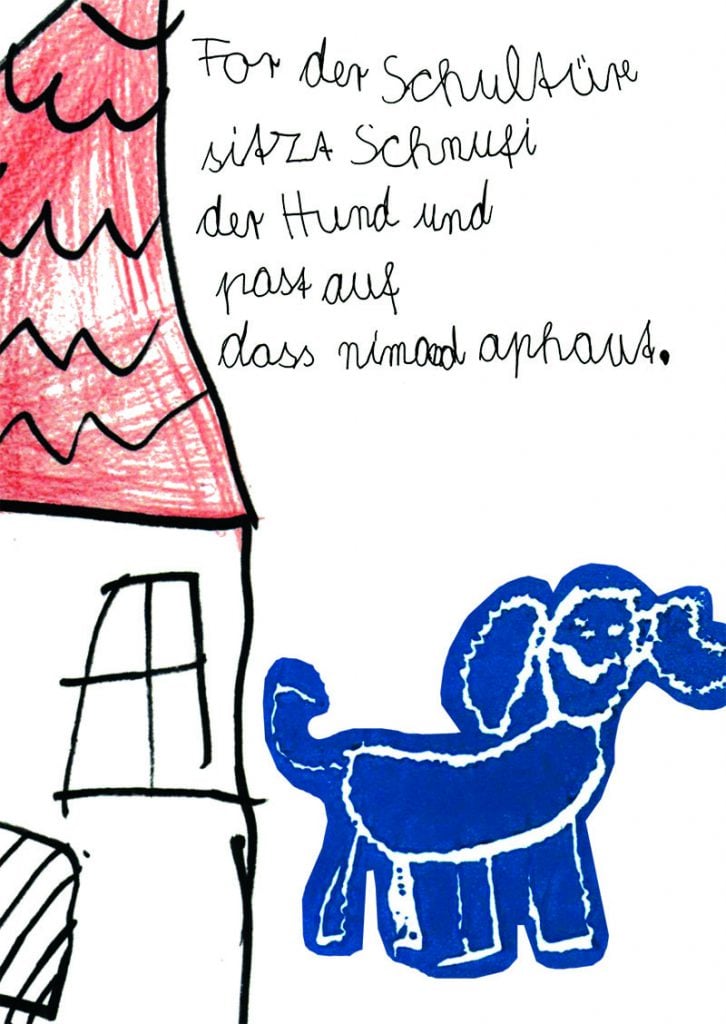 For der Schultüre
sitzt Schnufi
der Hund und
past auf
dass nimad aphaut.